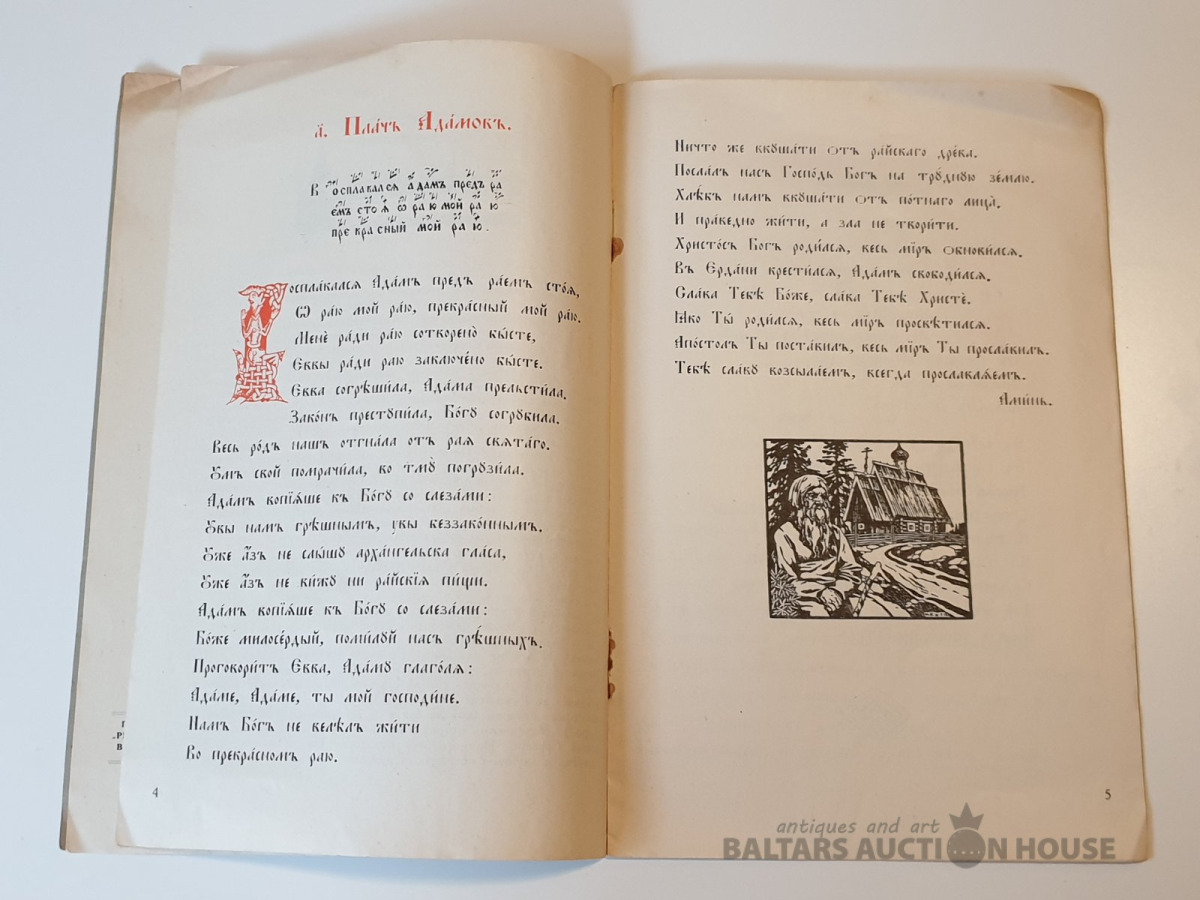 а҃. Пла́чъ Ада́мовъ.
Восплавался адамъ предъ ра
емъ стоѧ ѿ раю мой раю
прекрасный мой раю.
Восплака́лся Ада́мъ предъ ра́емъ сто́ѧ,
Ѡ раю мой раю, прекра́сный мой раю.
Менѐ ра́ди раю сотворено̀ бы́сте,
Еввы ра́ди раю заключе́но бы́сте.
Евва согрѣши́ла, Ада́ма прельсти́ла.
Зако́нъ преступи́ла, Бо́гу согрубила.
Весь ро́дъ нашъ отгна́ла отъ рая свята́го.
Умъ свой помрачи́ла, во тму̀ погрузи́ла.
Ада́мъ вопїѧ́ше къ Бо́гу со слеза́ми:
Увы намъ грѣшнымъ, увы беззако́ннымъ.
Уже а҆́зъ не слы́шу арха́нгельска гла́са,
Уже а҆́зъ не ви́жу ни ра́йскїѧ пи́щи.
Ада́мъ вопїѧ́ше къ Бо́гу со слеза́ми:
Бо́же милосе́рдый, поми́луй насъ грѣ́шныхъ.
Проговори́тъ Евва, Ада́му глаго́лѧ:
Ада́ме, Ада́ме, ты мой господи́не.
Намъ Бо́гъ не велѣ́лъ жи́ти
Во прекра́сномъ раю.
4
Ничто же вкуша́ти отъ ра́йскаго дре́ва.
Посла́лъ насъ Госпо́дь Богъ на тру́дную зе́млю.
Хлѣ́бъ намъ вкуша́ти отъ по́тнаго лица̀.
И пра́ведно жи́ти, а зла не твори́ти.
Христо́съ Богъ роди́лся, весь мі́ръ обнови́лся.
Въ Ерда́ни крести́лся, Ада́мъ свободи́лся.
Сла́ва Тебѣ̀ Бо́же, сла́ва Тебѣ̀ Христѐ.
Ꙗко Ты̀ роди́лся, весь мі́ръ просвѣти́лся.
Апо́столъ Ты поста́вилъ, весь мі́ръ Ты просла́вилъ.
Тебѣ̀ сла́ву возсыла́емъ, всегда прославлѧ́емъ.
Ами́нь.
5
antiques and art
BALTARS AUCTION HOUSE